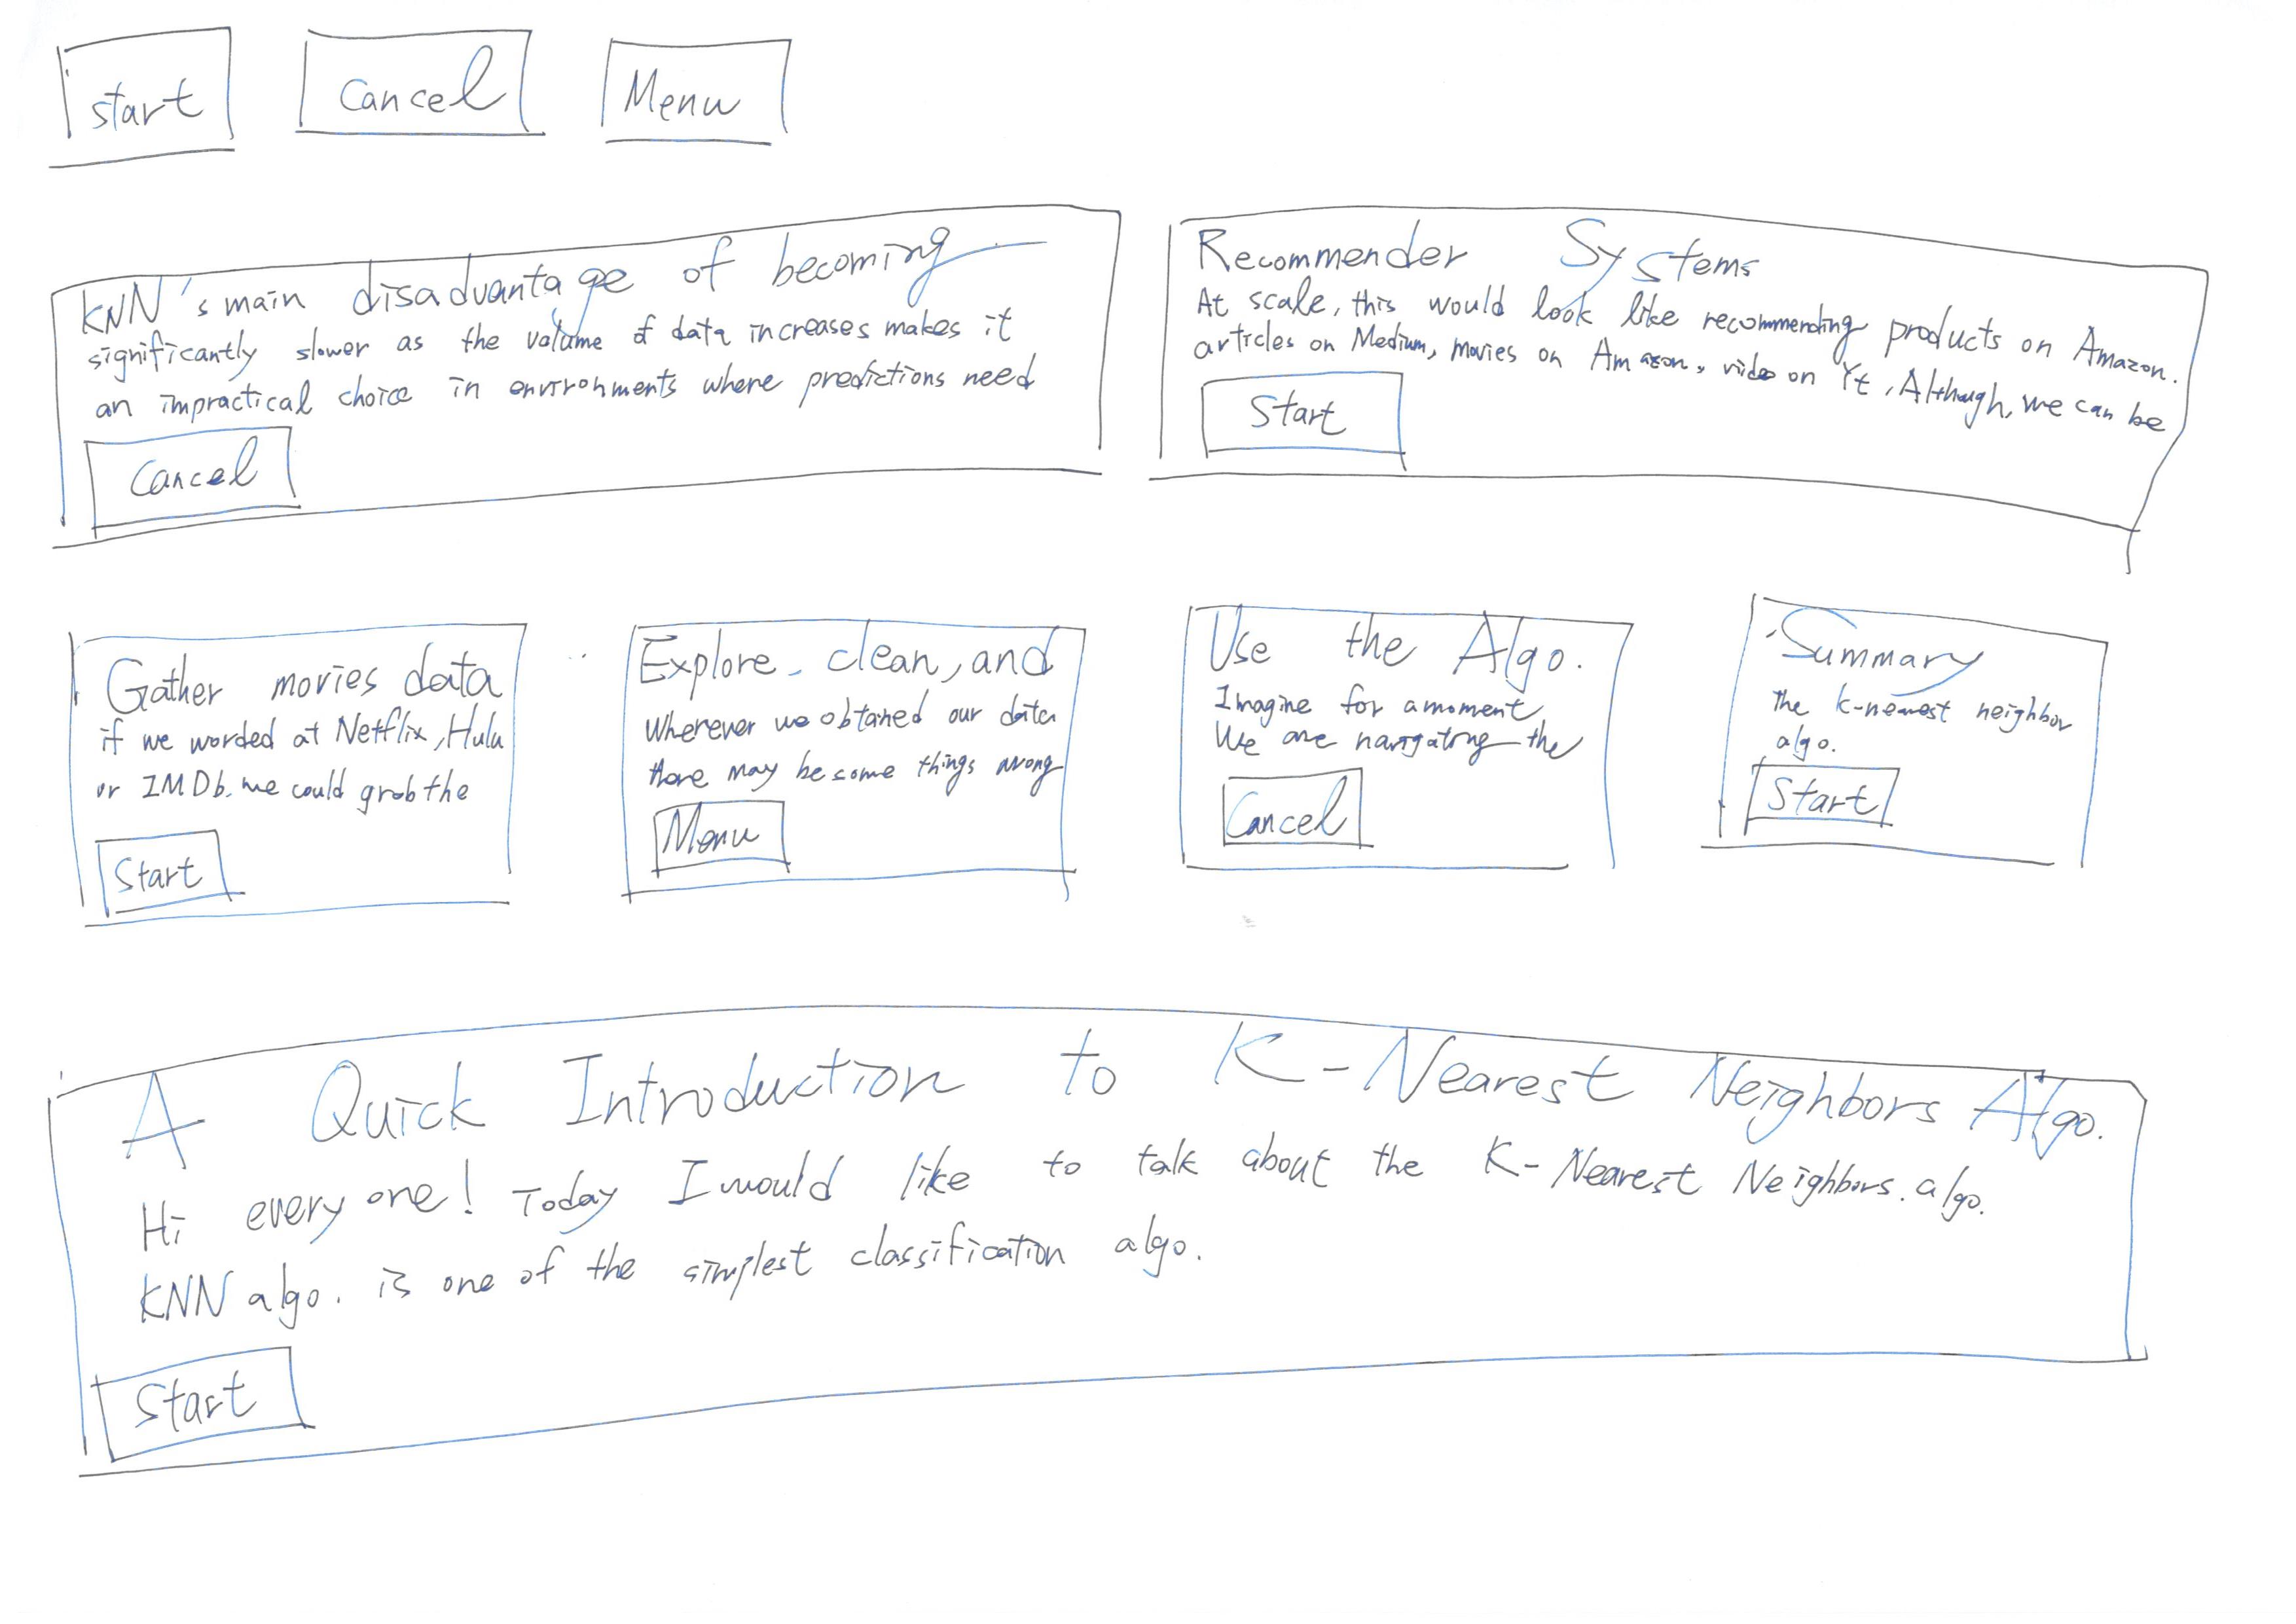 start
Cancel
Menu
KNN's main disadvantage of becoming
significantly slower as the volume of data increases makes it
an impractical choice in environments where predictions need
Cancel
Recommender Systems
At scale, this would look like recommending products on Amazon.
articles on Medium, movies on Amazon, video on Yt, Although, we can be
Start
Gather movies data
if we worded at Netflix, Hulu
or IMDb. we could grab the
Start
Explore, clean, and
Wherever we obtained our data
there may be some things wrong
Menu
Use the Algo.
Imagine for a moment
We are navigating the
Cancel
Summary
The k-nearest neighbor
algo.
Start
A Quick Introduction to K-Nearest Neighbors Algo.
Hi every one! Today I would like to talk about the K-Nearest Neighbors. algo.
KNN algo. is one of the simplest classification algo.
Start